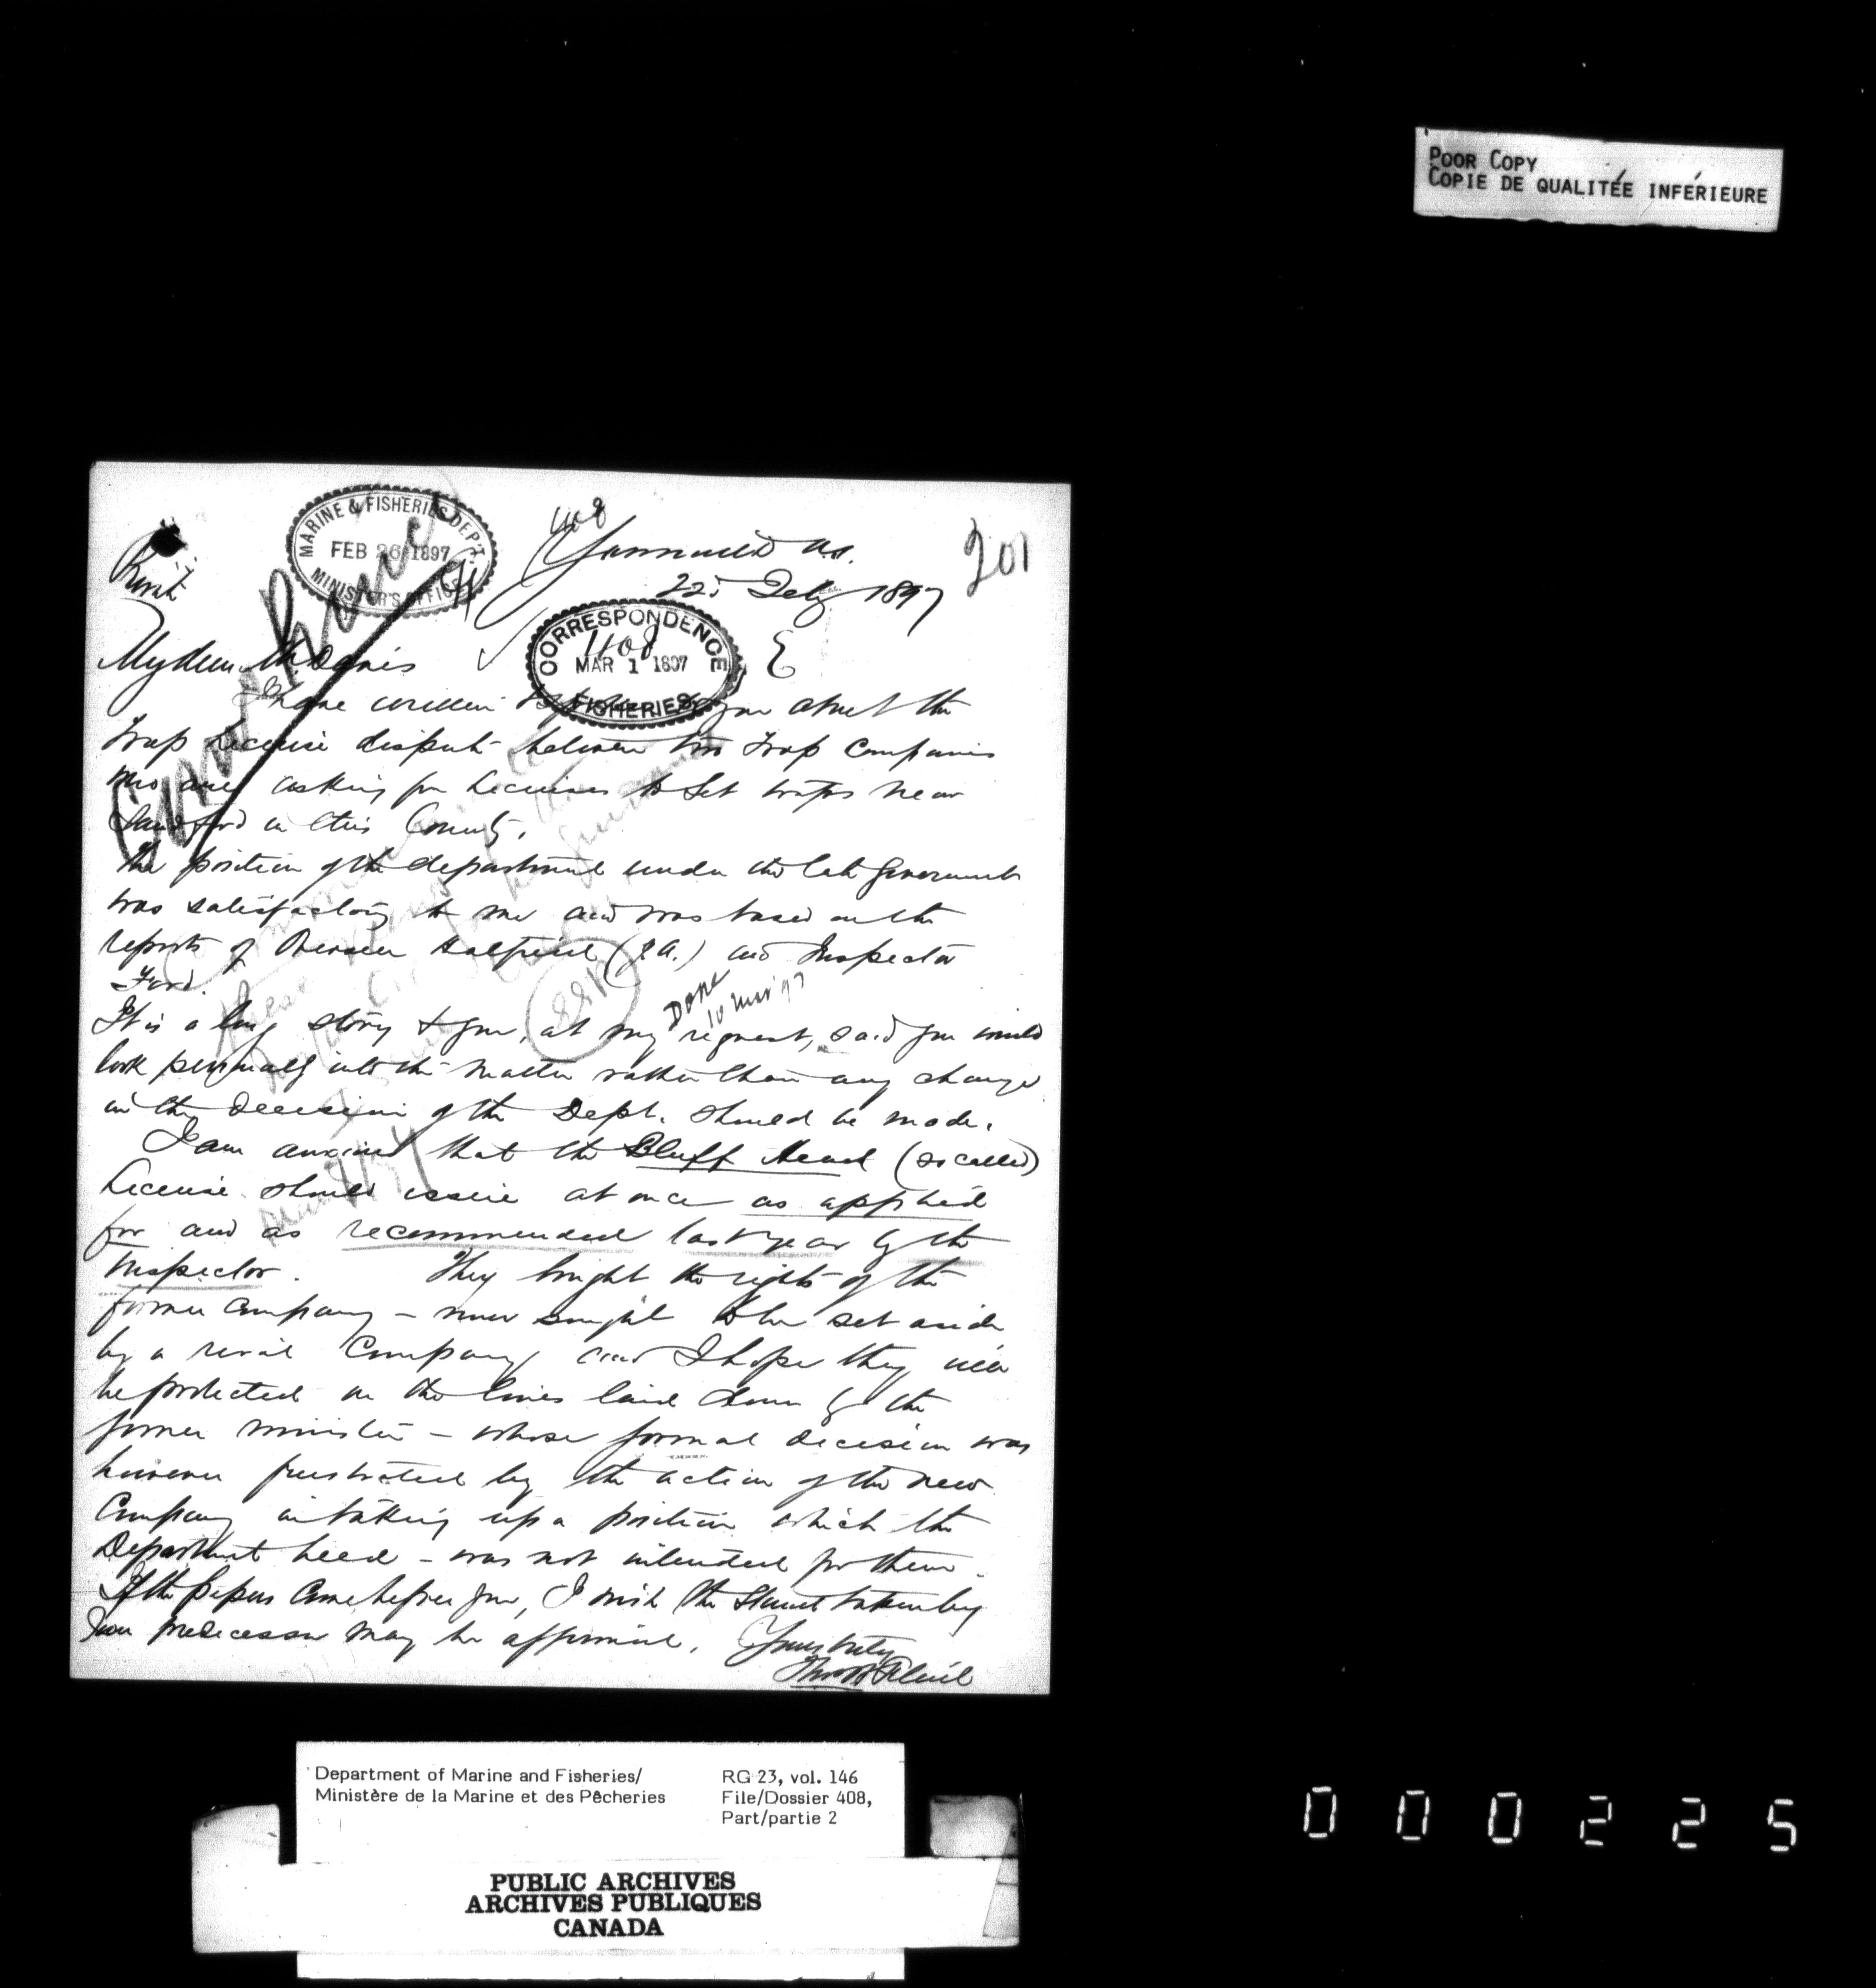 POOR COPY
COPIE DE QUALITÉE INFÉRIEURE
408
201
MARINE & FISHERIES DEP'T.
FEB 26 1897
MINISTER'S OFFICE
Yarmouth N.S.
22 Feby 1897
CORRESPONDENCE
1108
MAR 1 1897
FISHERIES
My dear Mr. Davies
I have written before to you about the
trap license dispute between two trap Companies
who are asking for licenses to set traps near
Sandford in this County.
The position of the department under the late Government
was satisfactory to me and was based on the
reports of Overseer Hatfield (J.A.) and Inspector
Ford.
Done
10 Mar 97
It is a long story & you, at my request, said you would
look personally into the matter rather than any change
in the decision of the Dept. should be made.
I am anxious that the Bluff Head (so called)
License should issue at once as applied
for and as recommended last year by the
Inspector. They bought the rights of the
former Company - now sought to be set aside
by a rival Company and I hope they will
be protected on the lines laid down by the
former minister - whose formal decision was
however frustrated by the action of the new
Company in taking up a position which the
Department held - was not intended for them.
If the papers come before you, I wish the stand taken by
your predecessor may be affirmed. Yours truly
Department of Marine and Fisheries/
Ministère de la Marine et des Pêcheries
RG 23, vol. 146
File/Dossier 408,
Part/partie 2
PUBLIC ARCHIVES
ARCHIVES PUBLIQUES
CANADA
000225